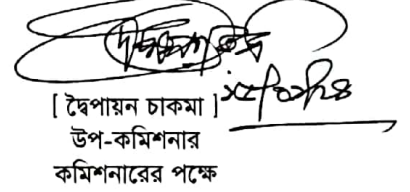 [ দ্বৈপায়ন চাকমা ]
উপ-কমিশনার
কমিশনারের পক্ষে